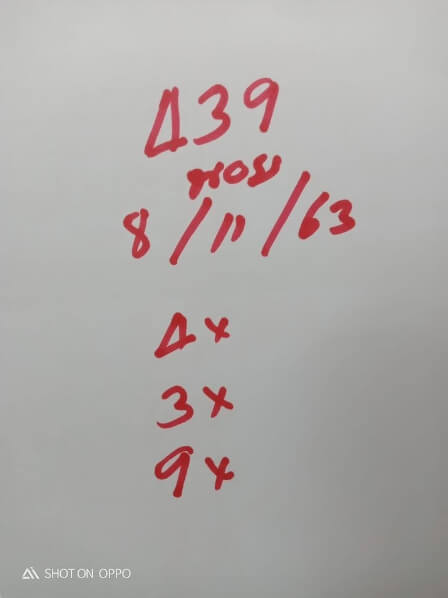 439
หอย
8/11/63
4x
3x
9x
SHOT ON OPPO